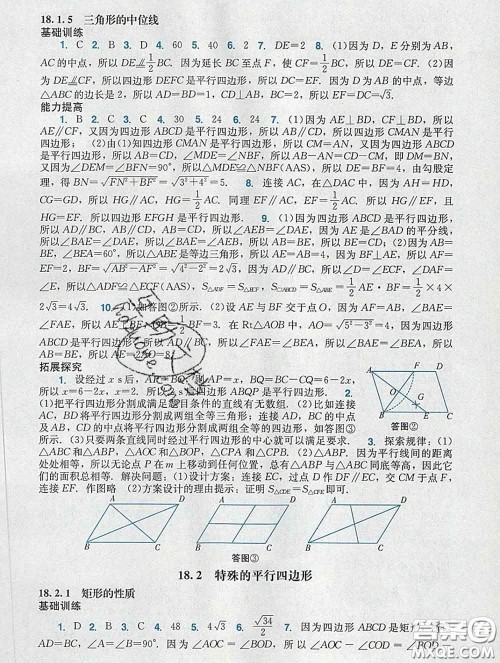 18.1.5 三角形的中位线
基础训练
1. C 2. B 3. D 4. 60 5. 40 6. 2 7. DE=2 8. (1)因为 D, E 分别为 AB,
AC 的中点,所以 DE∥=1/2 BC. 因为延长 BC 至点 F, 使 CF=1/2 BC, 所以 DE∥=CF. (2)因
为 DE∥=CF, 所以四边形 DEFC 是平行四边形,所以 DC=EF. 因为 D 为 AB 的中点,等边
△ABC 的边长是 2, 所以 AD=BD=1, CD⊥AB, BC=2, 所以 EF=DC=√3.
能力提高
1. B 2. C 3. C 4. 30 5. 24 6. 24 7. (1)因为 AE⊥BD, CF⊥BD, 所以
AE∥CF, 又因为四边形 ABCD 是平行四边形,所以 AB∥CD, 所以四边形 CMAN 是平行四
边形; (2)由(1)知四边形 CMAN 是平行四边形,所以 CM=AN. 又因为四边形 ABCD 是
平行四边形,所以 AB=CD, ∠MDE=∠NBF. 所以 AB-AN=CD-CM, 即 DM=BN,
又因为∠DEM=∠BFN=90°, 所以△MDE≌△NBF(AAS), 所以 DE=BF=4, 由勾股定
理,得 BN=√(FN²+BF²)=√(3²+4²)=5. 8. 连接 AC, 在△DAC 中,因为 AH=HD,
CG=GD, 所以 HG∥AC, HG=1/2 AC. 同理 EF∥AC, EF=1/2 AC. 所以 HG∥EF, 且
HG=EF. 所以四边形 EFGH 是平行四边形. 9. (1)因为四边形 ABCD 是平行四边形,
所以 AD∥BC, AB∥CD, AB=CD, 所以∠DAE=∠AEB. 又因为 AE 是∠BAD 的平分线,
所以∠BAE=∠DAE, 所以∠BAE=∠AEB, 所以 AB=BE, 所以 BE=CD; (2)因为 AB
=BE, ∠BEA=60°, 所以△ABE 是等边三角形,所以 AE=AB=4. 因为 BF⊥AE, 所以 AF=
EF=2, BF=√(AB²-AF²)=√(4²-2²)=2√3. 因为 AD∥BC, 所以∠D=∠ECF, ∠DAF=
∠E, 所以△ADF≌△ECF(AAS), 所以 S△ADF=S△ECF, S▱ABCD=S△ABE=1/2 AE·BF=1/2×4×
2√3=4√3. 10. (1)如答图②所示. (2)设 AE 与 BF 交于点 O, 因为 AB=AF, ∠BAE=
∠FAE, 所以 AE⊥BF, OB=OF=1/2 BF=3. 在 Rt△AOB 中, AO=√(5²-3²)=4, 因为
四边形 ABCD 是平行四边形,所以 AD∥BC, 所以∠FAE=∠AEB, 所以∠BAE=∠AEB,
拓展探究
1. 设经过 x s 后,
所以 x=6-2x, 解得 x=2. 所以经过 2 s 后四边形 ABQP 是平行四边形. 2. (1)
答图②
将平行四边形分割成满足题目条件的直线有无数组. (2)比如连接
AC, BD 将平行四边形分割成两组全等三角形;连接 AD, BC 的中点
及 AB, CD 的中点将平行四边形分割成两组全等的四边形,如答图③
所示. (3)只要两条直线同时经过平行四边形的中心就可以满足要求. 3. 探索规律: (1)
△ABC 和△ABP, △AOC 和△BOP, △CPA 和△CPB. (2)△ABP. 因为平行线间的距离
处处相等,所以无论点 P 在 m 上移动到任何位置,总有△ABP 与△ABC 同底等高,因此它
们的面积总相等. 解决问题: (1)设计方案:连接 EC, 过点 D 作 DF∥EC, 交 CM 于点 F,
连接 EF. 作图略 (2)方案设计的理由提示:证明 S△CDE=S△CEF 即可.
答图③
18.2 特殊的平行四边形
18.2.1 矩形的性质
基础训练
1. C 2. D 3. C 4. 48 5. 4√3 6. √34/2 7. 因为四边形 ABCD 是矩
AD=BC, ∠A=∠B=90°. 因为∠AOC=∠BOD, 所以∠AOC-∠COD=∠BOD-